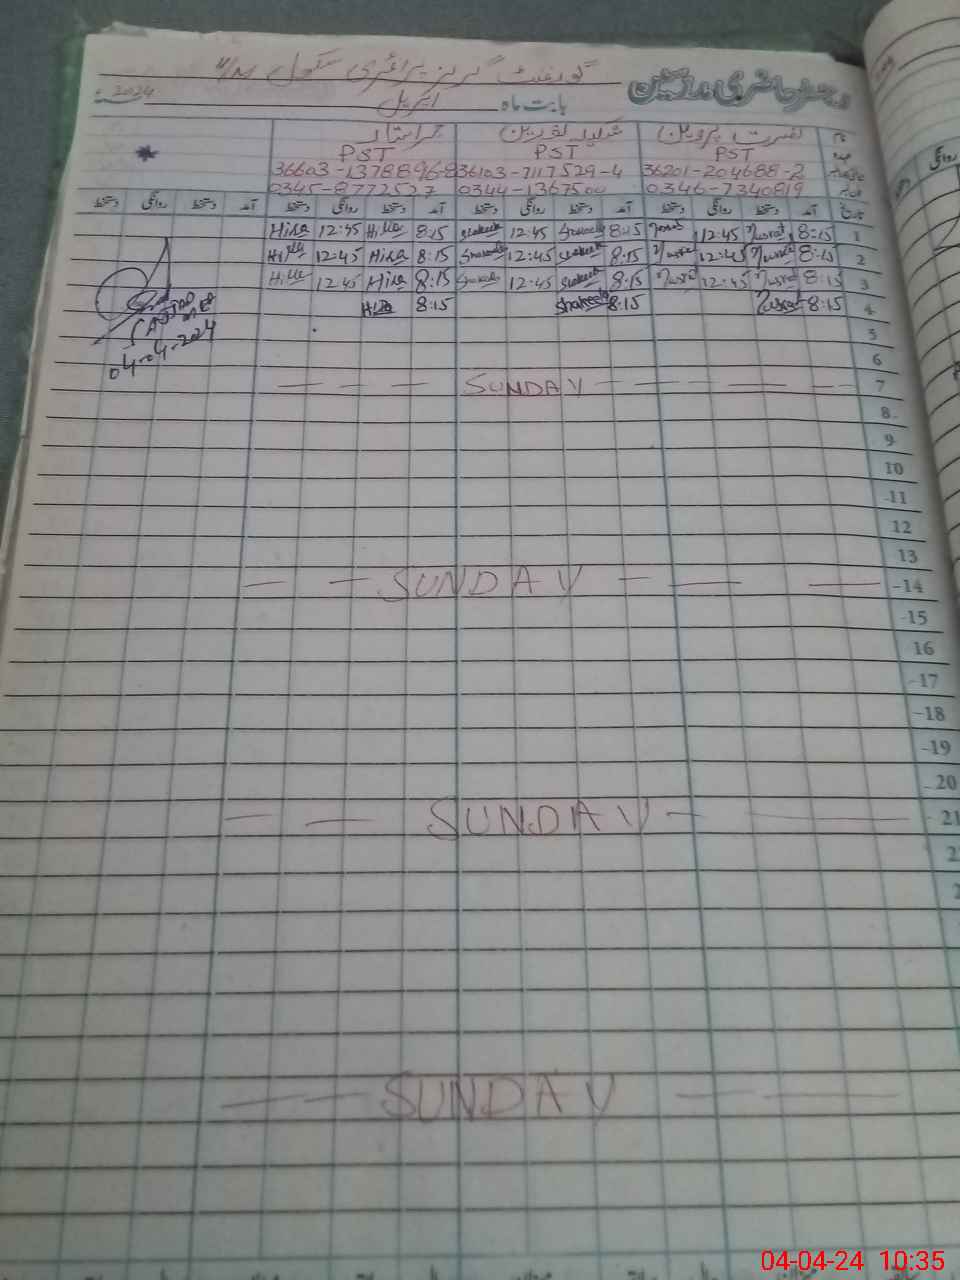 رجسٹر حاضری مدرسین گورنمنٹ گرلز پرائمری سکول
بابت ماہ اپریل 2024
نام نصرت پروین شکیلہ نفرین حرا ستار
عہدہ PST PST PST
36201-204688-2 36103-7117529-4 36603-1378896-8
0346-7340819 0344-1367500 0345-8772527
تاریخ آمد دستخط روانگی دستخط آمد دستخط روانگی دستخط آمد دستخط روانگی دستخط آمد دستخط روانگی دستخط
1 8:15 Nusrat 12:45 Nusrat 8:15 Shakeela 12:45 Shakeela 8:15 Hira 12:45 Hira
2 8:15 Nusrat 12:45 Nusrat 8:15 Shakeela 12:45 Shakeela 8:15 Hira 12:45 Hira
3 8:15 Nusrat 12:45 Nusrat 8:15 Shakeela 12:45 Shakeela 8:15 Hira 12:45 Hira
4 8:15 Nusrat 8:15 Shakeela 8:15 Hira
04-04-2024
5
6
7 SUNDAY
8
9
10
11
12
13
14 SUNDAY
15
16
17
18
19
20
21 SUNDAY
SUNDAY
04-04-24 10:35